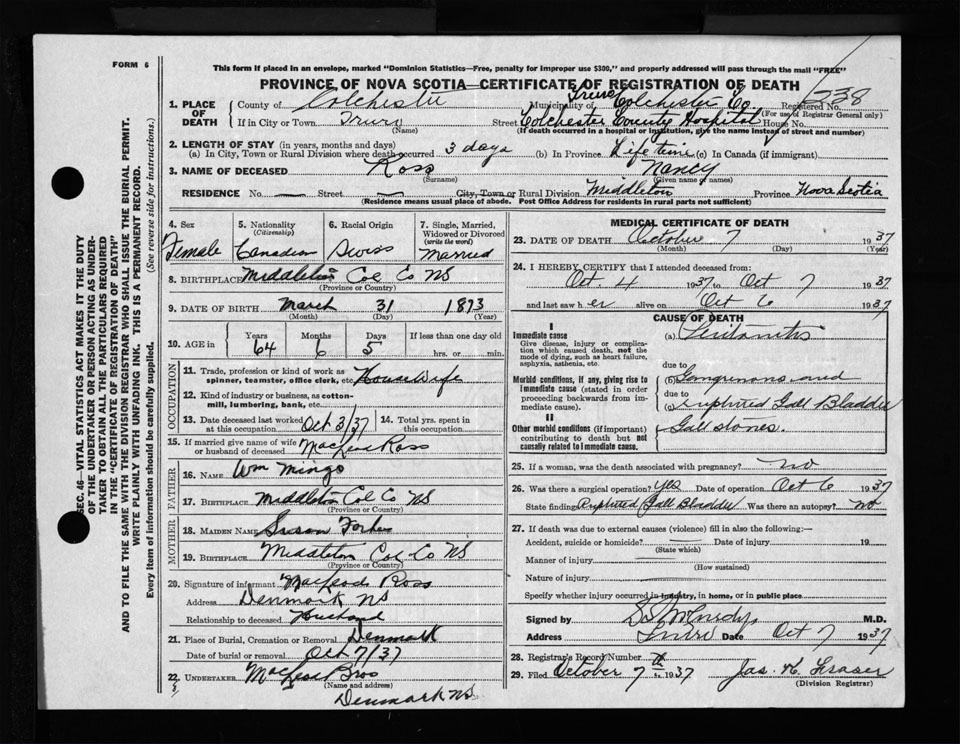 FORM 6
This form if placed in an envelope, marked "Dominion Statistics—Free, penalty for improper use $300," and properly addressed will pass through the mail "FREE"
PROVINCE OF NOVA SCOTIA—CERTIFICATE OF REGISTRATION OF DEATH
1. PLACE OF DEATH County of Colchester Municipality of Truro Colchester Co. Registered No. 738
(For use of Registrar General only)
If in City or Town Truro Street Colchester County Hospital House No.
(Name) (If death occurred in a hospital or institution, give the name instead of street and number)
2. LENGTH OF STAY (in years, months and days)
(a) In City, Town or Rural Division where death occurred 3 days (b) In Province Life time (c) In Canada (if immigrant)
3. NAME OF DECEASED Ross Nancy
(Surname) (Given name or names)
RESIDENCE No. — Street — City, Town or Rural Division Middleton Province Nova Scotia
(Residence means usual place of abode. Post Office Address for residents in rural parts not sufficient)
4. Sex Female
5. Nationality (Citizenship) Canadian
6. Racial Origin Swiss
7. Single, Married, Widowed or Divorced (write the word) Married
8. BIRTHPLACE Middleton Col Co NS
(Province or Country)
9. DATE OF BIRTH March 31 1873
(Month) (Day) (Year)
10. AGE in Years 64 Months 6 Days 5 If less than one day old
hrs. or min.
OCCUPATION
11. Trade, profession or kind of work as spinner, teamster, office clerk, etc. Housewife
12. Kind of industry or business, as cotton-mill, lumbering, bank, etc.
13. Date deceased last worked at this occupation Oct 3/37
14. Total yrs. spent in this occupation
15. If married give name of wife or husband of deceased MacLeod Ross
FATHER
16. NAME Wm Mingo
17. BIRTHPLACE Middleton Col Co NS
(Province or Country)
MOTHER
18. MAIDEN NAME Susan Forbes
19. BIRTHPLACE Middleton Col Co NS
(Province or Country)
20. Signature of informant MacLeod Ross
Address Denmark NS
Relationship to deceased Husband
21. Place of Burial, Cremation or Removal Denmark
Date of burial or removal Oct 7/37
22. UNDERTAKER Bros
(Name and address)
Denmark NS
MEDICAL CERTIFICATE OF DEATH
23. DATE OF DEATH October 7 1937
(Month) (Day) (Year)
24. I HEREBY CERTIFY that I attended deceased from:
Oct. 4 1937 to Oct 7 1937
and last saw her alive on Oct 6 1937
CAUSE OF DEATH
I
Immediate cause (a) Peritonitis
Give disease, injury or complication which caused death, not the mode of dying, such as heart failure, asphyxia, asthenia, etc.
due to
Morbid conditions, if any, giving rise to immediate cause (stated in order proceeding backwards from immediate cause).
(b) Gangrenous and
due to
(c) Ruptured Gall Bladder
II
Other morbid conditions (if important) contributing to death but not causally related to immediate cause.
Gall stones.
25. If a woman, was the death associated with pregnancy? no
26. Was there a surgical operation? yes Date of operation Oct 6 1937
State findings Ruptured Gall Bladder Was there an autopsy? no
27. If death was due to external causes (violence) fill in also the following:—
Accident, suicide or homicide? Date of injury 19
(State which)
Manner of injury
(How sustained)
Nature of injury
Specify whether injury occurred in industry, in home, or in public place
Signed by M.D.
Address Truro Date Oct 7 1937
28. Registrar's Record Number
29. Filed October 7 1937 Jas. H. Fraser
(Division Registrar)
SEC. 46—VITAL STATISTICS ACT MAKES IT THE DUTY
OF THE UNDERTAKER OR PERSON ACTING AS UNDER-
TAKER TO OBTAIN ALL THE PARTICULARS REQUIRED
IN THE "CERTIFICATE OF REGISTRATION OF DEATH"
AND TO FILE THE SAME WITH THE DIVISION REGISTRAR WHO SHALL ISSUE THE BURIAL PERMIT.
WRITE PLAINLY WITH UNFADING INK. THIS IS A PERMANENT RECORD.
Every item of information should be carefully supplied. (See reverse side for instructions.)